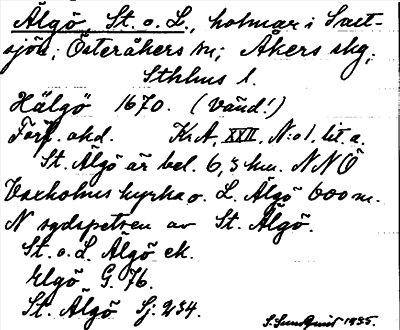 Älgö, St. o. L., holmar i Salt-
sjön; Österåkers sn; Åkers skg;
Sthlms l.
Hälgö 1670. (Vänd!)
Förf. okd. KrA, XXII, N:o 1, lit. a.
St. Älgö är bel. 6,5 km. NNÖ
Vaxholms kyrka o. L. Älgö 600 m.
N sydspetsen av St. Älgö.
St. o. L. Älgö ek.
Elgö G. 76.
St. Älgö Sj. 234.
S. Sundquist 1935.